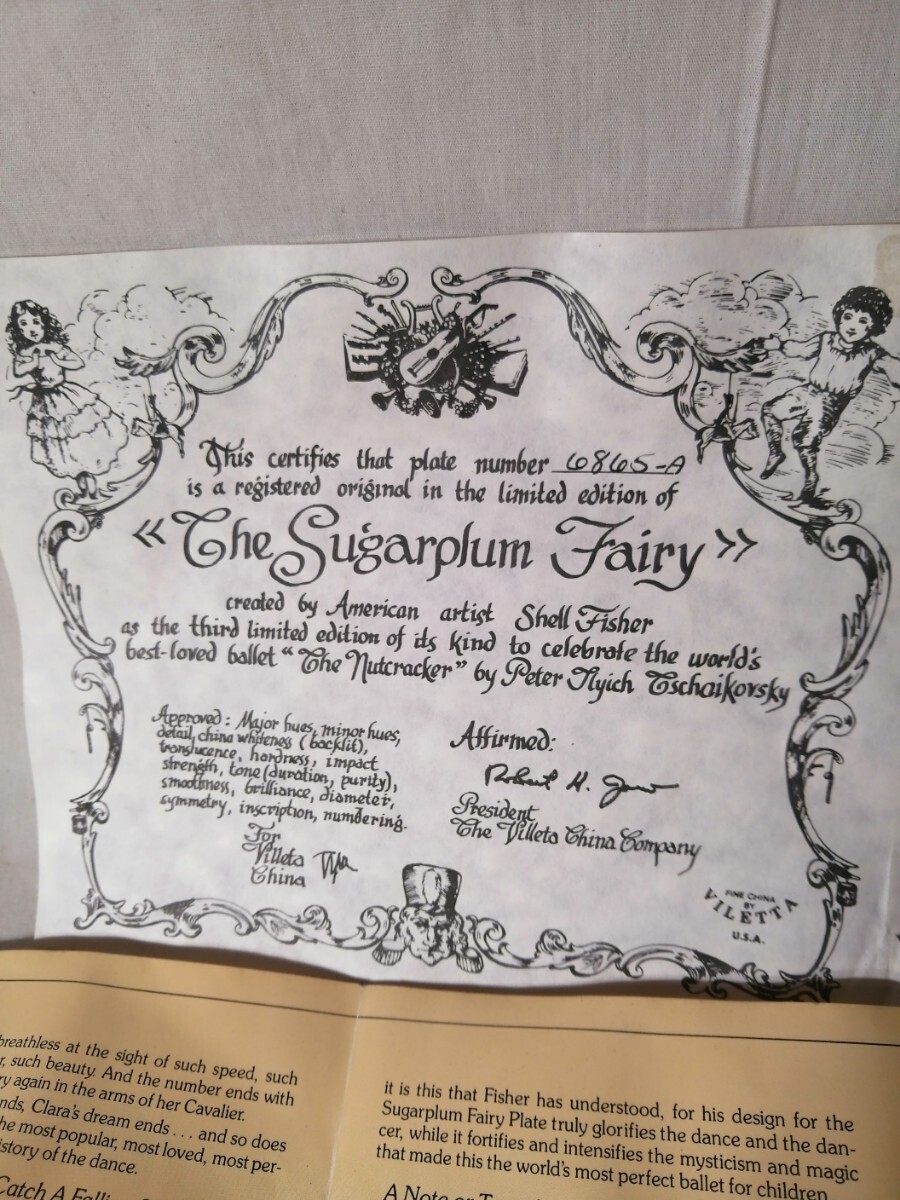 This certifies that plate number 6865-A
is a registered original in the limited edition of
«The Sugarplum Fairy»
created by American artist Shell Fisher
as the third limited edition of its kind to celebrate the world's
best-loved ballet "The Nutcracker" by Peter Ilyich Tschaikovsky
Approved: Major hues, minor hues,
detail, china whiteness (backlit),
translucence, hardness, impact
strength, tone (duration, purity),
smoothness, brilliance, diameter,
symmetry, inscription, numbering.
For
Villeta
China
Affirmed:
Robert H.
President
The Villeta China Company
FINE CHINA
BY
VILETTA
U.S.A.
breathless at the sight of such speed, such
such beauty. And the number ends with
again in the arms of her Cavalier.
Clara's dream ends . . . and so does
the most popular, most loved, most per-
of the dance.
Catch A
it is this that Fisher has understood, for his design for the
Sugarplum Fairy Plate truly glorifies the dance and the dan-
cer, while it fortifies and intensifies the mysticism and magic
that made this the world's most perfect ballet for children
A Note